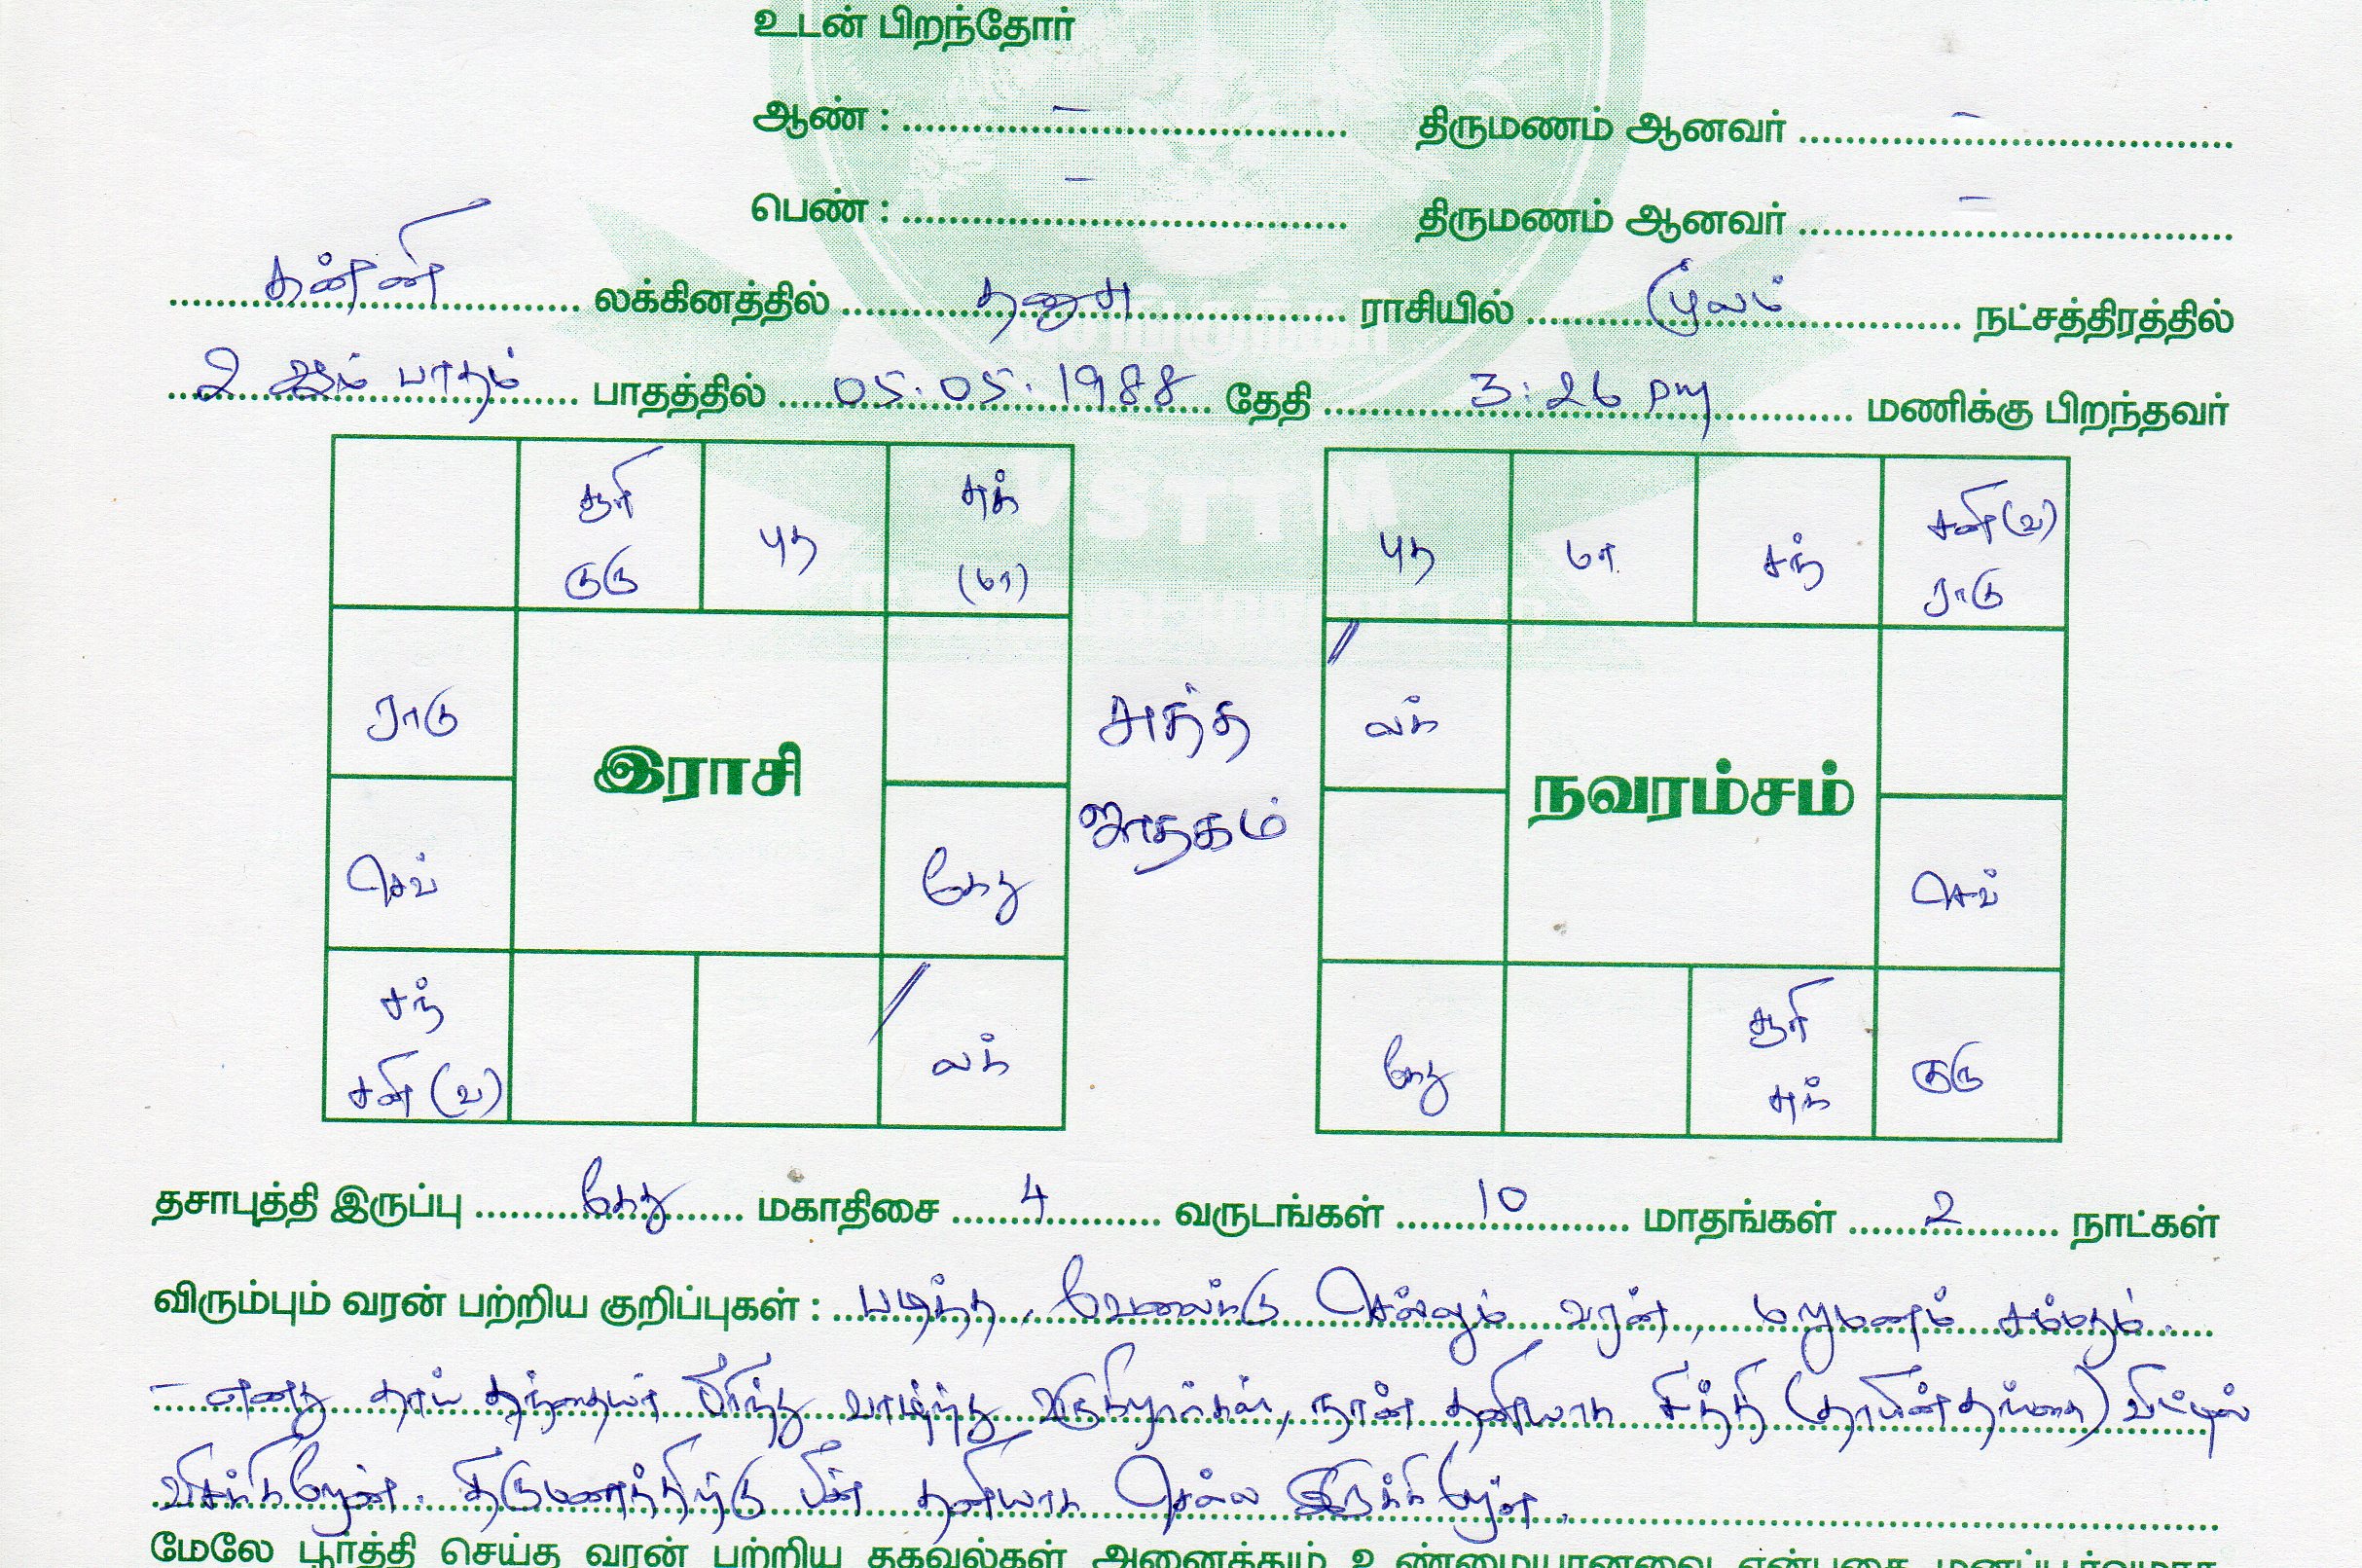 உடன் பிறந்தோர்
ஆண் : – திருமணம் ஆனவர் –
பெண் : – திருமணம் ஆனவர் –
கன்னி லக்கினத்தில் தனுசு ராசியில் மூலம் நட்சத்திரத்தில்
2 ஆம் பாதம் பாதத்தில் 05.05.1988 தேதி 3:26 pm மணிக்கு பிறந்தவர்
சூரி குரு புத சுக் (மா)
புத மா சந் சனி(வ) ராகு
VSTTM
ராகு இராசி
சுத்த ஜாதகம்
லக் நவரம்சம்
செவ் கேது
செவ்
சந் சனி(வ) லக்
கேது சூரி சுக் குரு
தசாபுத்தி இருப்பு கேது மகாதிசை 4 வருடங்கள் 10 மாதங்கள் 2 நாட்கள்
விரும்பும் வரன் பற்றிய குறிப்புகள் : படித்த, வேலைக்கு செல்லும் வரன், மறுமணம் சம்மதம்.
– எனது தாய் தந்தையர் பிரிந்து வாழ்ந்து வருகிறார்கள், நான் தனியாக சித்தி (தாயின் தங்கை) வீட்டில்
வசிக்கிறேன். திருமணத்திற்கு பின் தனியாக செல்ல இருக்கிறேன்.
மேலே பூர்த்தி செய்த வரன் பற்றிய தகவல்கள் அனைத்தும் உண்மையானவை என்பதை மனப்பூர்வமாக